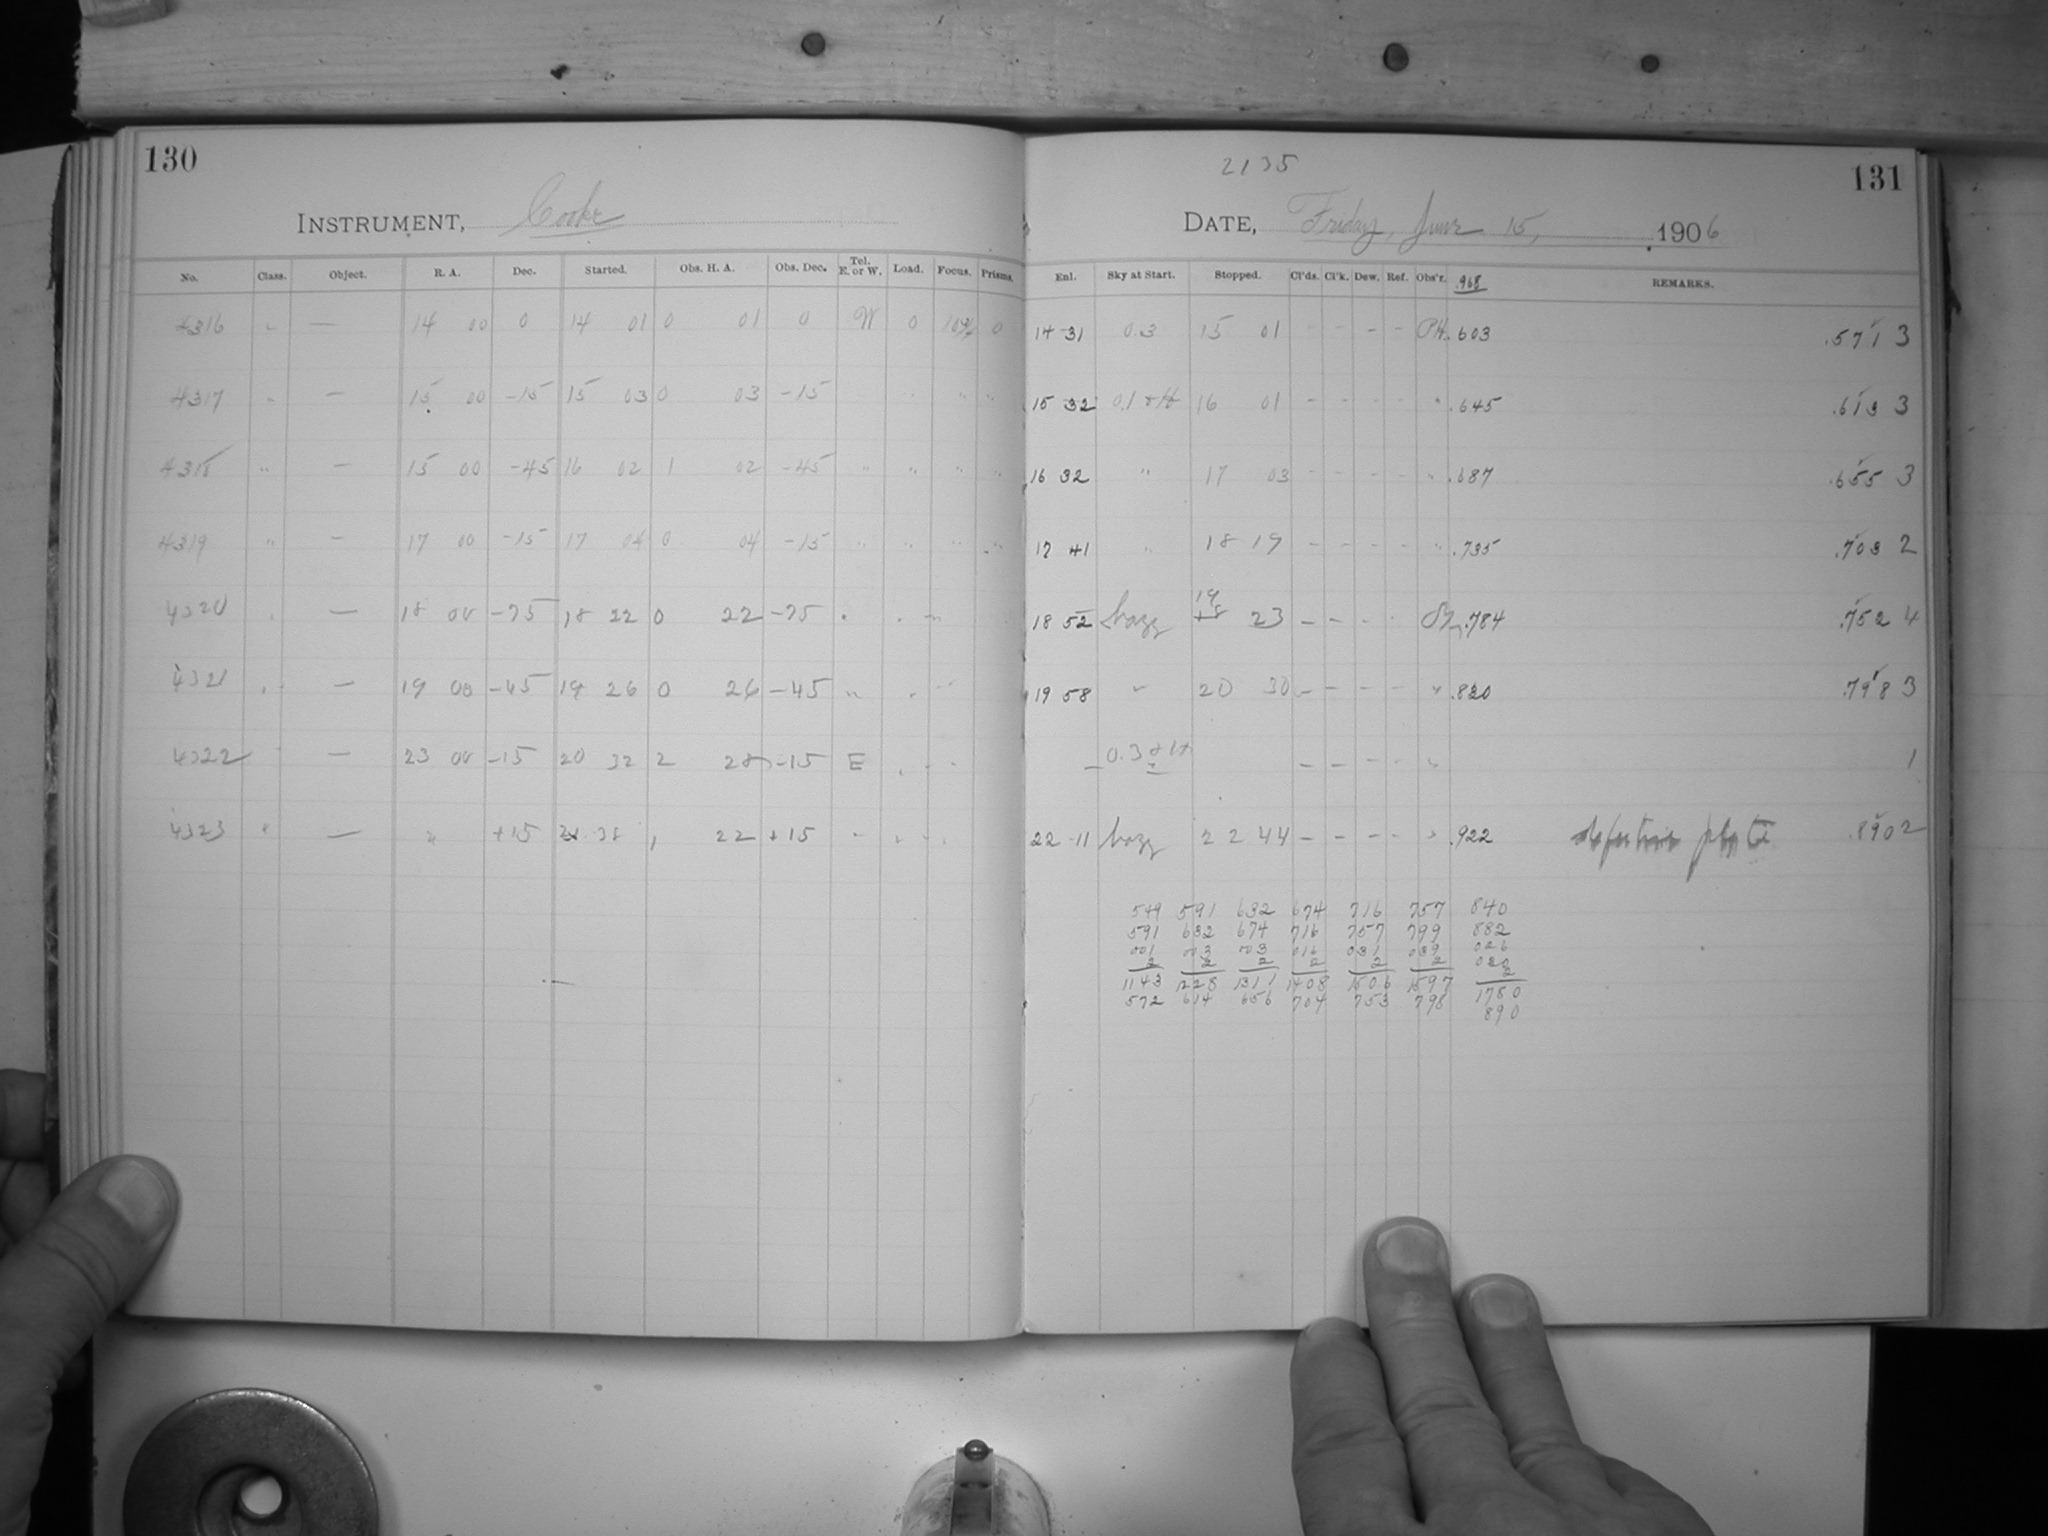 130
INSTRUMENT, Cooke
No. Class. Object. R. A. Dec. Started. Obs. H. A. Obs. Dec. Tel. E. or W. Load. Focus. Prisms.
4316 " — 14 00 0 14 01 0 01 0 W 0 0
4317 " — 15 00 -15 15 03 0 03 -15 " " "
4318 " — 15 00 -45 16 02 1 02 -45 " " " "
4319 " — 17 00 -15 17 04 0 04 -15 " " " "
4320 " — 18 00 -75 18 22 0 22 -75 " " "
4321 " — 19 00 -45 19 26 0 26 -45 " " "
4322 — 23 00 -15 20 32 2 28 -15 E " " "
4323 " — " +15 21 38 1 22 +15 " " " "
2135
131
DATE, Friday, June 15, 1906
Enl. Sky at Start. Stopped. Cl'ds. Cl'k. Dew. Ref. Obs'r. .968 REMARKS.
14 31 0.3 15 01 - - - - PH. .603 .571 3
15 32 0.1 16 01 - - - - " .645 .613 3
16 32 " 17 03 - - - - " .687 .655 3
17 41 " 18 19 - - - - " .735 .703 2
18 52 hazy 19 18 23 - - - - .784 .752 4
19 58 " 20 30 - - - - " .830 .798 3
— 0.3 - - - - " 1
22 11 hazy 22 44 - - - - " .922 defective plate .890 2
549 591 632 674 716 757 840
591 632 674 716 757 799 882
001 003 003 016 031 039 026
2 2 2 2 2 2 030
1143 1228 1311 1408 1506 1597 2
572 614 656 704 753 798 1780
890